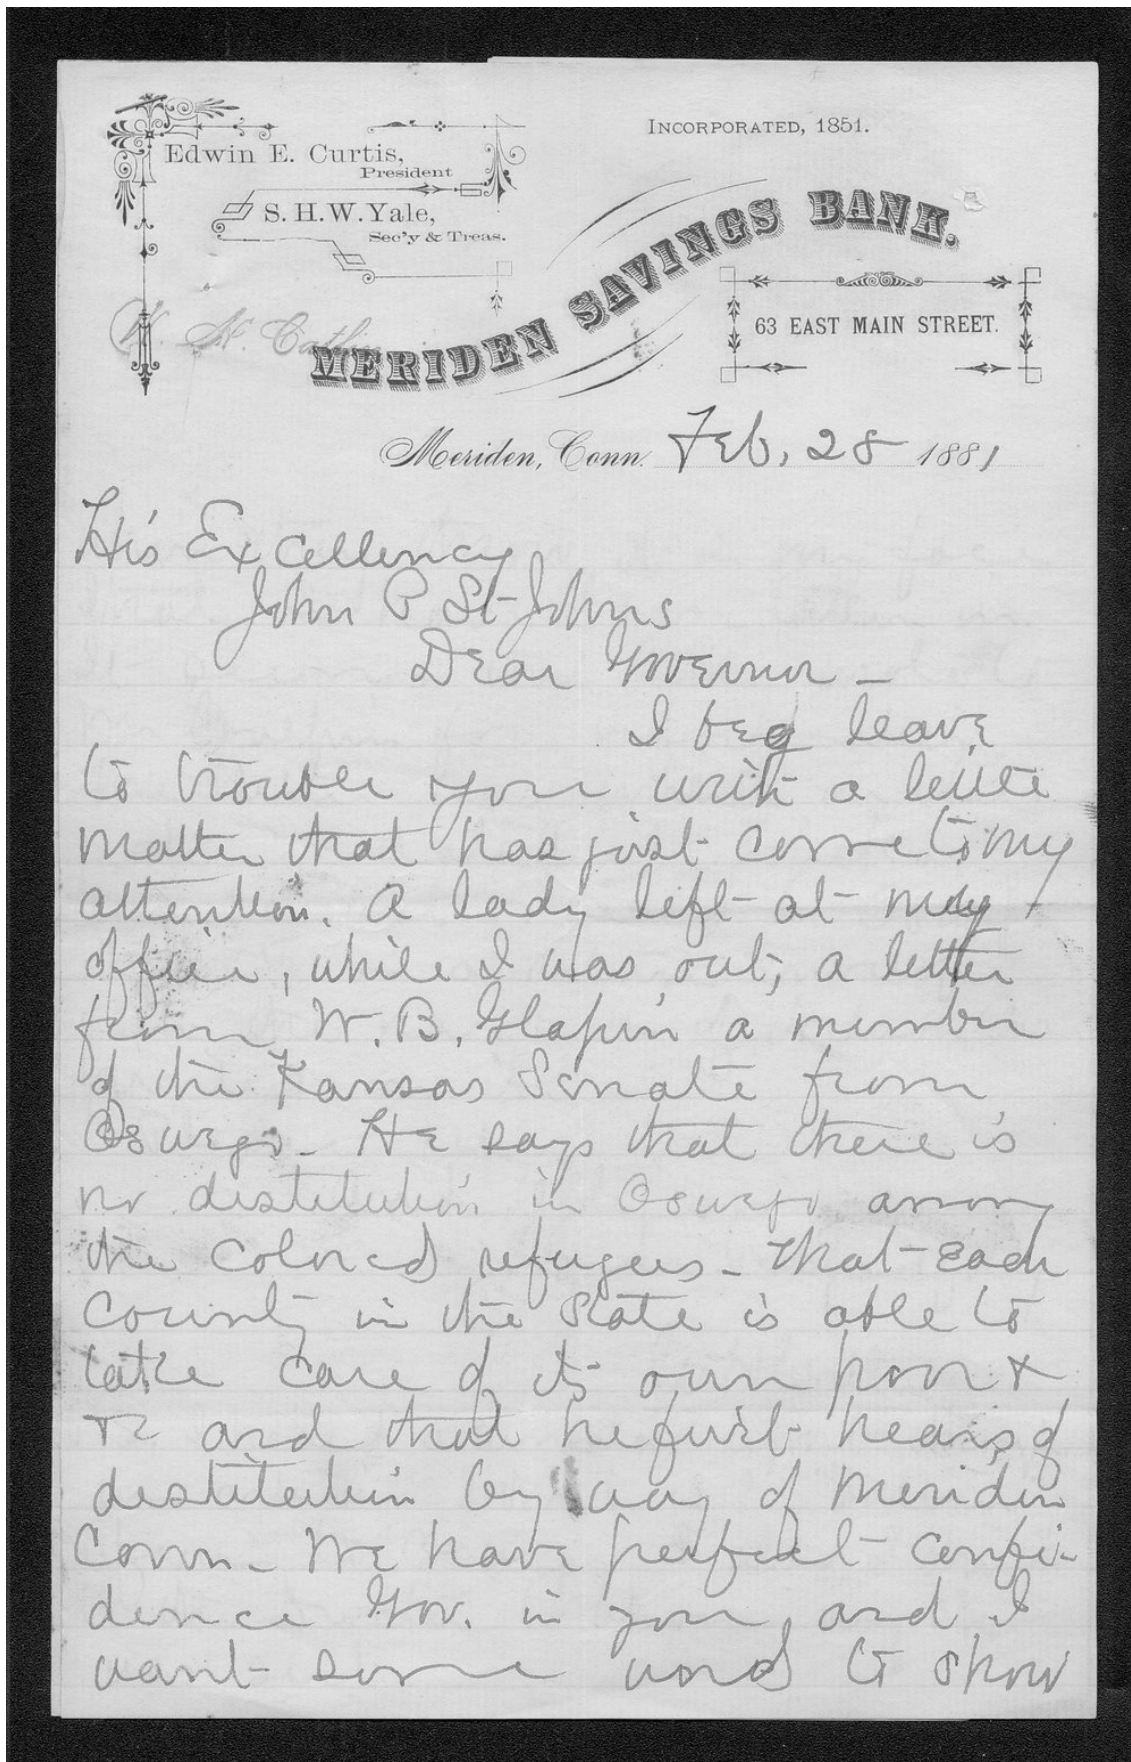 Edwin E. Curtis,
President
S. H. W. Yale,
Sec'y & Treas.
INCORPORATED, 1851.
MERIDEN SAVINGS BANK.
63 EAST MAIN STREET.
Meriden, Conn. Feb, 28 1881
His Excellency
John P St Johns
Dear Governor –
I beg leave
to trouble you with a little
matter that has just come to my
attention. A lady left at my
office, while I was out, a letter
from W. B. a member
of the Kansas Senate from
Oswego – He says that there is
no destitution in Oswego among
the colored refugees – that each
County in the State is able to
take care of its own poor &
&c and that he first hears of
destitution by way of Meriden
Conn – We have perfect confi-
dence Gov. in you and I
want some word to show